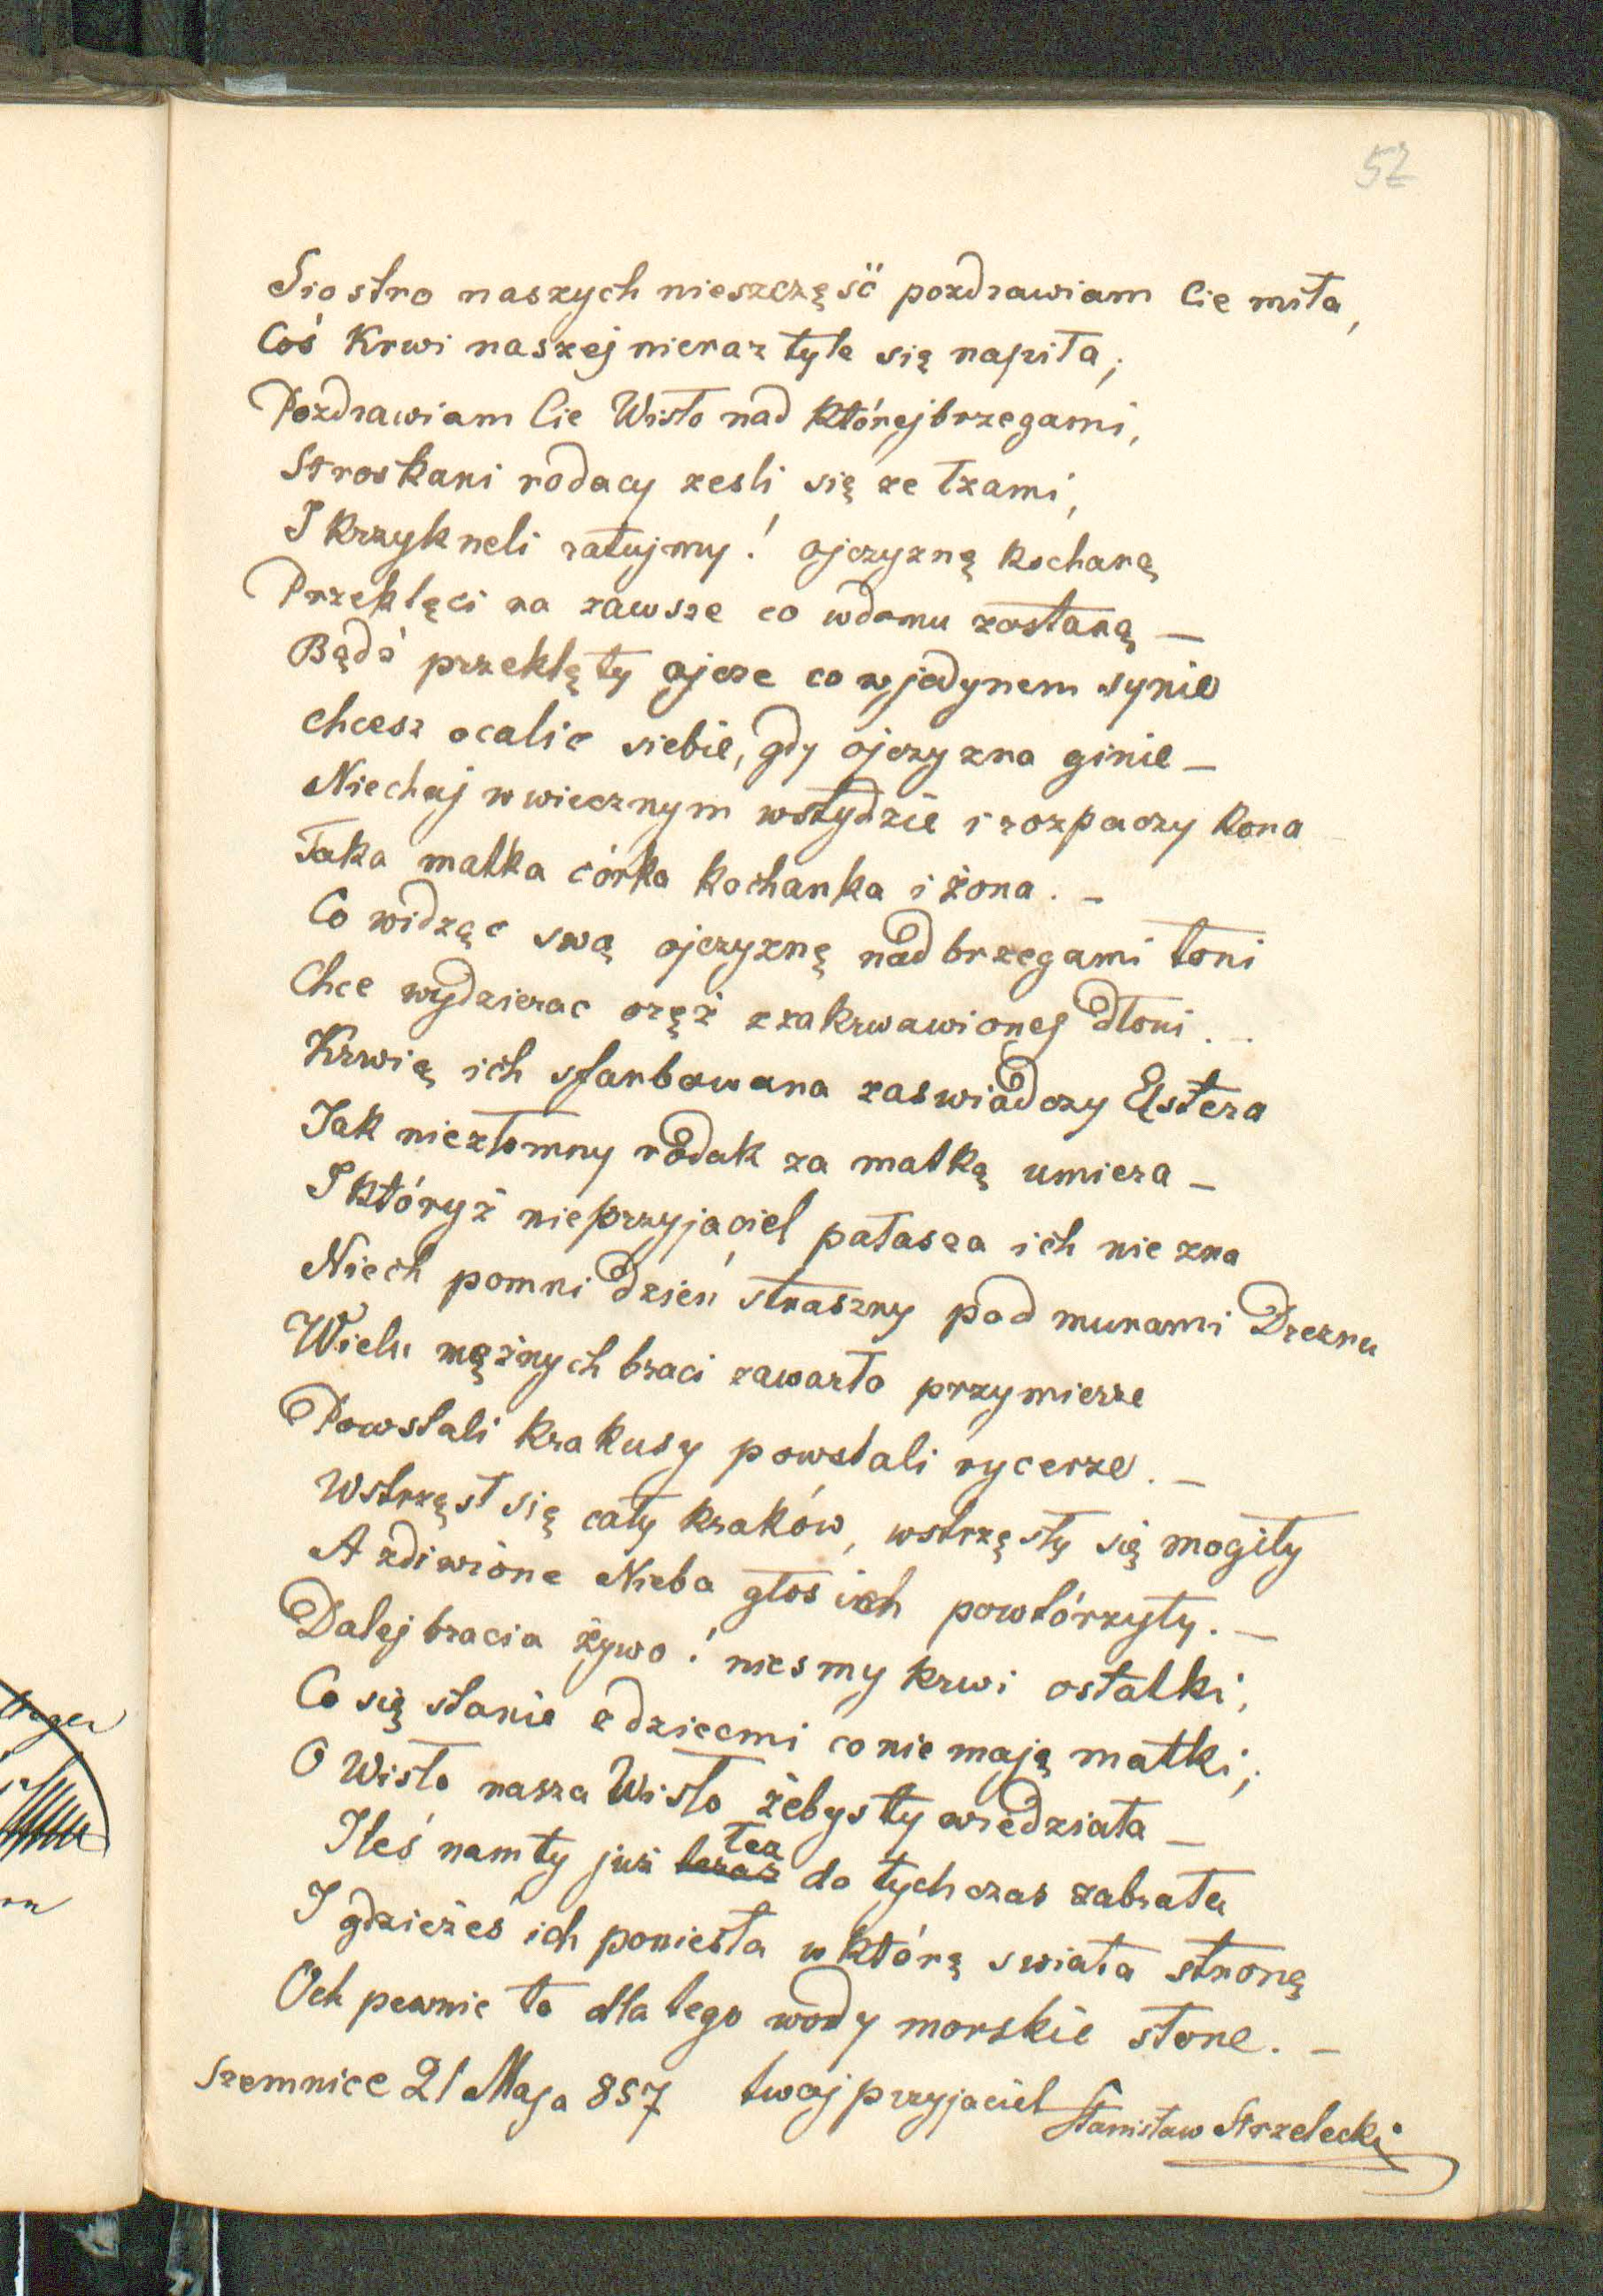 52
Siostro naszych nieszczęść pozdrawiam Cie miła,
Coś Krwi naszej nieraz tyle się napiła;
Pozdrawiam Cie Wisło nad którejbrzegami,
Stroskani rodacy zesli się ze łzami,
I krzykneli ratujmy! ojczyznę kochaną
Przeklęci na zawsze co wdomu zostaną _
Bądź przeklęty ojcze co wjedynem synie
chcesz ocalic siebie, gdy ojczyzna ginie _
Niechaj wwiecznym wstydzie i rozpaczy kona
Taka matka córka kochanka i żona. _
Co widząc swą ojczyznę nad brzegami toni
Chce wydzierac oręż zzakrwawionej dłoni. _
Krwią ich sfarbowana zaswiadczy Elstera
Jak niezłomny rodak za matkę umiera _
I któryż nieprzyjaciel pałasza ich nie zna
Niech pomni dzień straszny pod murami Drezna
Wielu mężnych braci zawarło przymierze
Powstali krakusy powstali rycerze. _
Wstrzęsł się cały kraków, wstrzęsły się mogiły
A zdiwione Nieba głos ich powtórzyły. _
Dalej bracia żywo! niesmy krwi ostatki,
Co się stanie zdziecmi co nie mają matki;
O Wisło nasza Wisło żebysty wiedziała _
Ileś namty już teraz łez do tychczas zabrała
I gdzieżeś ich poniesła w którą swiata stronę
Och pewnie to dla tego wody morskie słone. _
Szemnice 21 Maja 857 twoj przyjaciel Stanisław Strzelecki